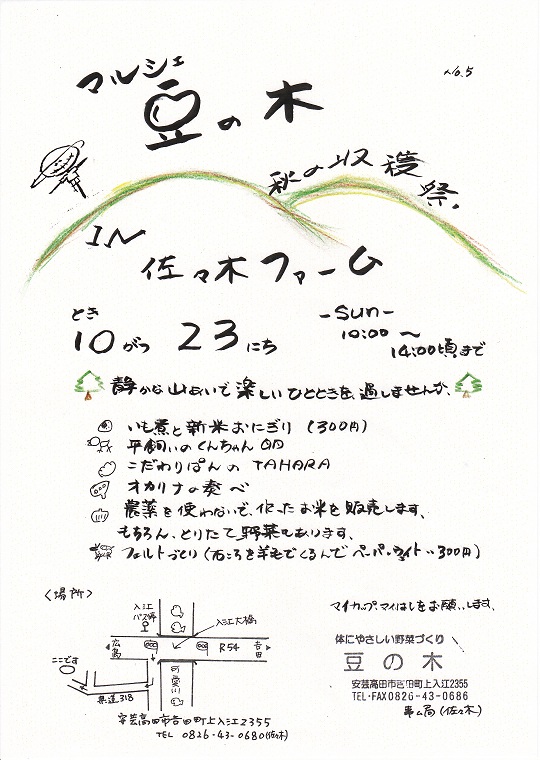 No.5
マルシェ
豆の木
秋の収穫祭.
IN
佐々木ファーム
とき
10がつ 23にち
-Sun-
10:00〜
14:00頃まで
静かな山あいで楽しいひとときを過しませんか、
いも煮と新米おにぎり(300円)
平飼いのくんちゃん
こだわりぱんの TAHARA
オカリナの奏べ
農薬を使わないで、作ったお米を販売します、
もちろん、とりたて野菜もあります、
フェルトづくり(石ころを羊毛でくるんでペーパーウェイト‥300円)
〈場所〉
入江
バス停
入江大橋
広島
R54
吉田
ここです
可愛川
県道318
安芸高田市吉田町上入江2355
TEL 0826-43-0680(佐々木)
マイカップ、マイはしをお願いします、
体にやさしい野菜づくり
豆の木
安芸高田市吉田町上入江2355
TEL・FAX0826-43-0686
事ム局(佐々木)